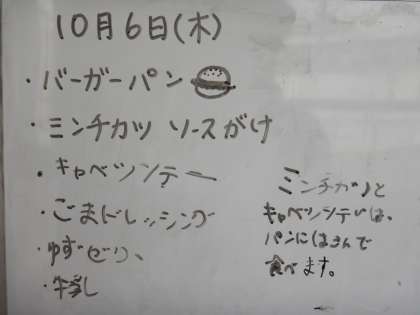 10月6日(木)
・バーガーパン
・ミンチカツ ソースがけ
・キャベツソテー
・ごまドレッシング
・ゆずゼリー
・牛乳
ミンチカツと
キャベツソテーは、
パンにはさんで
食べます。